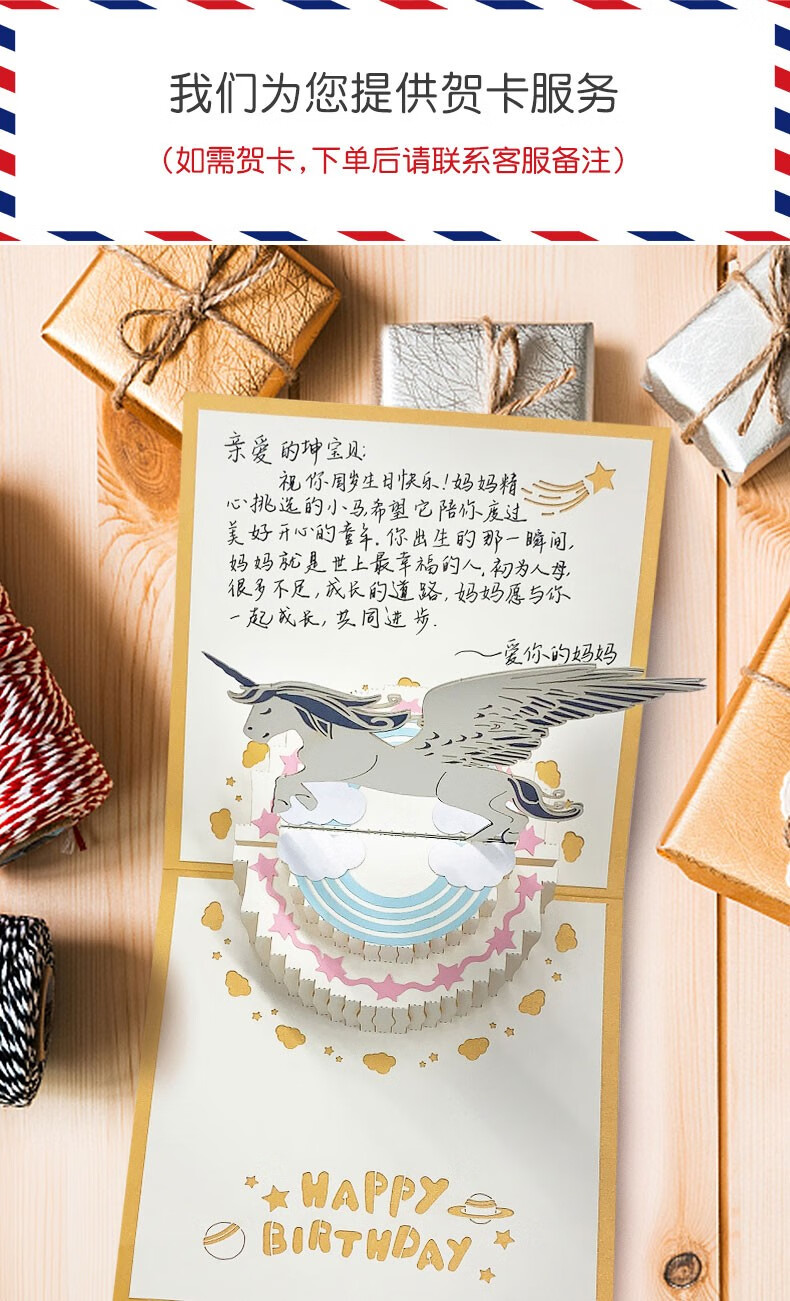 我们为您提供贺卡服务
（如需贺卡,下单后请联系客服备注）
亲爱的坤宝贝:
祝你周岁生日快乐!妈妈精
心挑选的小马,希望它陪你度过
美好开心的童年.你出生的那一瞬间,
妈妈就是世上最幸福的人.初为人母,
很多不足,成长的道路,妈妈愿与你
一起成长,共同进步.
——爱你的妈妈
HAPPY
BIRTHDAY